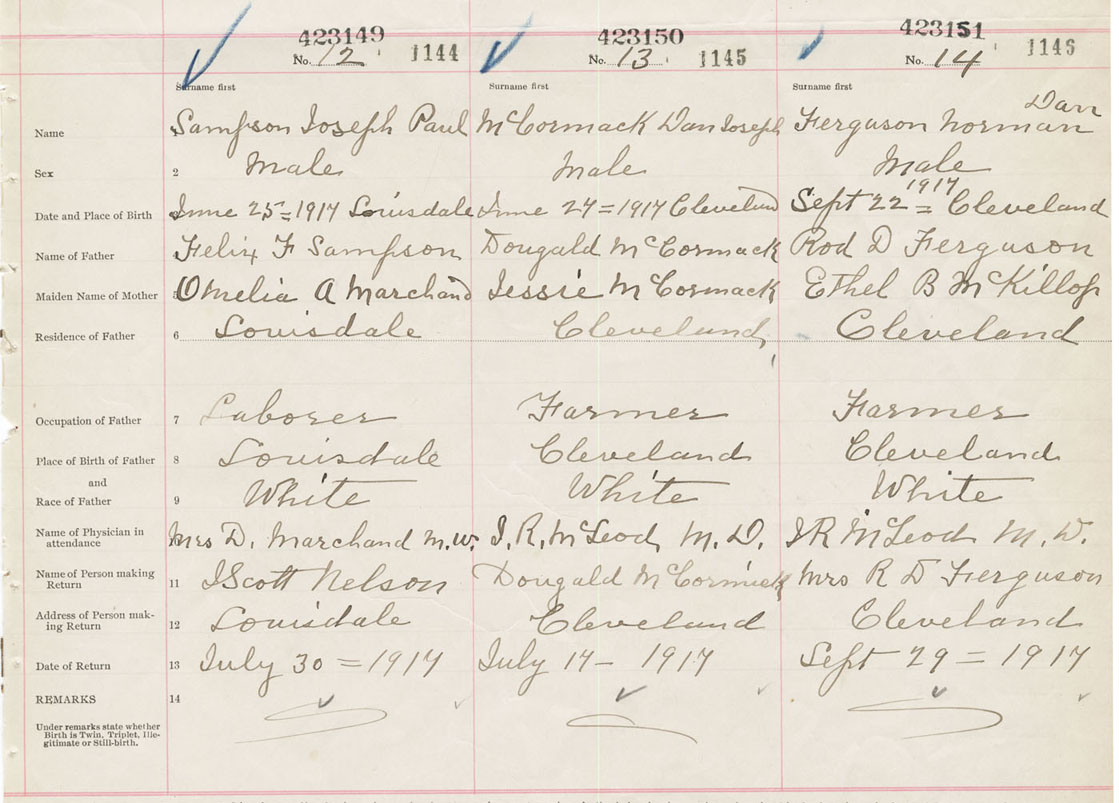 423149 423150 423151
No. 12 1144 No. 13 1145 No. 14 1146
Surname first Surname first Surname first
Dan
Name Sampson Joseph Paul McCormack Dan Joseph Ferguson Norman
Sex 2 Male Male Male
1917
Date and Place of Birth June 25=1917 Louisdale June 27=1917 Cleveland Sept 22= Cleveland
Name of Father Felix F Sampson Dougald McCormack Rod D Ferguson
Maiden Name of Mother 5 Omelia A Marchand Jessie McCormack Ethel B McKillop
Residence of Father 6 Louisdale Cleveland Cleveland
Occupation of Father 7 Laborer Farmer Farmer
Place of Birth of Father 8 Louisdale Cleveland Cleveland
and
Race of Father 9 White White White
Name of Physician in
attendance Mrs D. Marchand M.W. J. R. McLeod, M. D. J R McLeod M. D.
Name of Person making
Return 11 J Scott Nelson Dougald McCormick Mrs R D Ferguson
Address of Person mak-
ing Return 12 Louisdale Cleveland Cleveland
Date of Return 13 July 30=1917 July 17- 1917 Sept 29=1917
REMARKS 14
Under remarks state whether
Birth is Twin, Triplet, Ille-
gitimate or Still-birth.